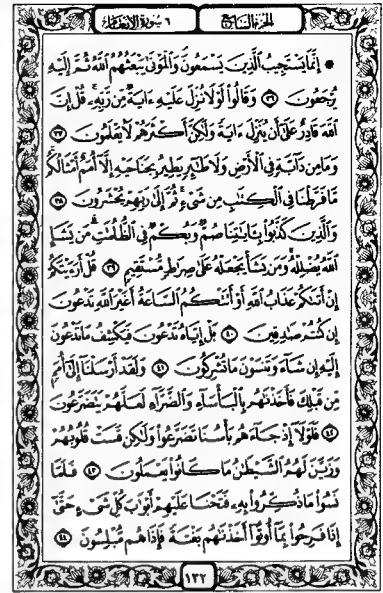 ٦ سورة الأنعام الجزء السابع
۞ إِنَّمَا يَسْتَجِيبُ الَّذِينَ يَسْمَعُونَ وَالْمَوْتَىٰ يَبْعَثُهُمُ اللَّهُ ثُمَّ إِلَيْهِ
يُرْجَعُونَ ٣٦ وَقَالُوا لَوْلَا نُزِّلَ عَلَيْهِ ءَايَةٌ مِّن رَّبِّهِۦ قُلْ إِنَّ
اللَّهَ قَادِرٌ عَلَىٰ أَن يُنَزِّلَ ءَايَةً وَلَٰكِنَّ أَكْثَرَهُمْ لَا يَعْلَمُونَ ٣٧
وَمَا مِن دَابَّةٍ فِي الْأَرْضِ وَلَا طَائِرٍ يَطِيرُ بِجَنَاحَيْهِ إِلَّا أُمَمٌ أَمْثَالُكُم
مَّا فَرَّطْنَا فِي الْكِتَٰبِ مِن شَيْءٍ ثُمَّ إِلَىٰ رَبِّهِمْ يُحْشَرُونَ ٣٨
وَالَّذِينَ كَذَّبُوا بِـَٔايَٰتِنَا صُمٌّ وَبُكْمٌ فِي الظُّلُمَٰتِ مَن يَشَإِ
اللَّهُ يُضْلِلْهُ وَمَن يَشَأْ يَجْعَلْهُ عَلَىٰ صِرَٰطٍ مُّسْتَقِيمٍ ٣٩ قُلْ أَرَءَيْتَكُمْ
إِنْ أَتَىٰكُمْ عَذَابُ اللَّهِ أَوْ أَتَتْكُمُ السَّاعَةُ أَغَيْرَ اللَّهِ تَدْعُونَ
إِن كُنتُمْ صَٰدِقِينَ ٤٠ بَلْ إِيَّاهُ تَدْعُونَ فَيَكْشِفُ مَا تَدْعُونَ
إِلَيْهِ إِن شَاءَ وَتَنسَوْنَ مَا تُشْرِكُونَ ٤١ وَلَقَدْ أَرْسَلْنَا إِلَىٰ أُمَمٍ
مِّن قَبْلِكَ فَأَخَذْنَٰهُم بِالْبَأْسَاءِ وَالضَّرَّاءِ لَعَلَّهُمْ يَتَضَرَّعُونَ
٤٢ فَلَوْلَا إِذْ جَاءَهُم بَأْسُنَا تَضَرَّعُوا وَلَٰكِن قَسَتْ قُلُوبُهُمْ
وَزَيَّنَ لَهُمُ الشَّيْطَٰنُ مَا كَانُوا يَعْمَلُونَ ٤٣ فَلَمَّا
نَسُوا مَا ذُكِّرُوا بِهِۦ فَتَحْنَا عَلَيْهِمْ أَبْوَٰبَ كُلِّ شَيْءٍ حَتَّىٰ
إِذَا فَرِحُوا بِمَا أُوتُوا أَخَذْنَٰهُم بَغْتَةً فَإِذَا هُم مُّبْلِسُونَ ٤٤
١٣٢